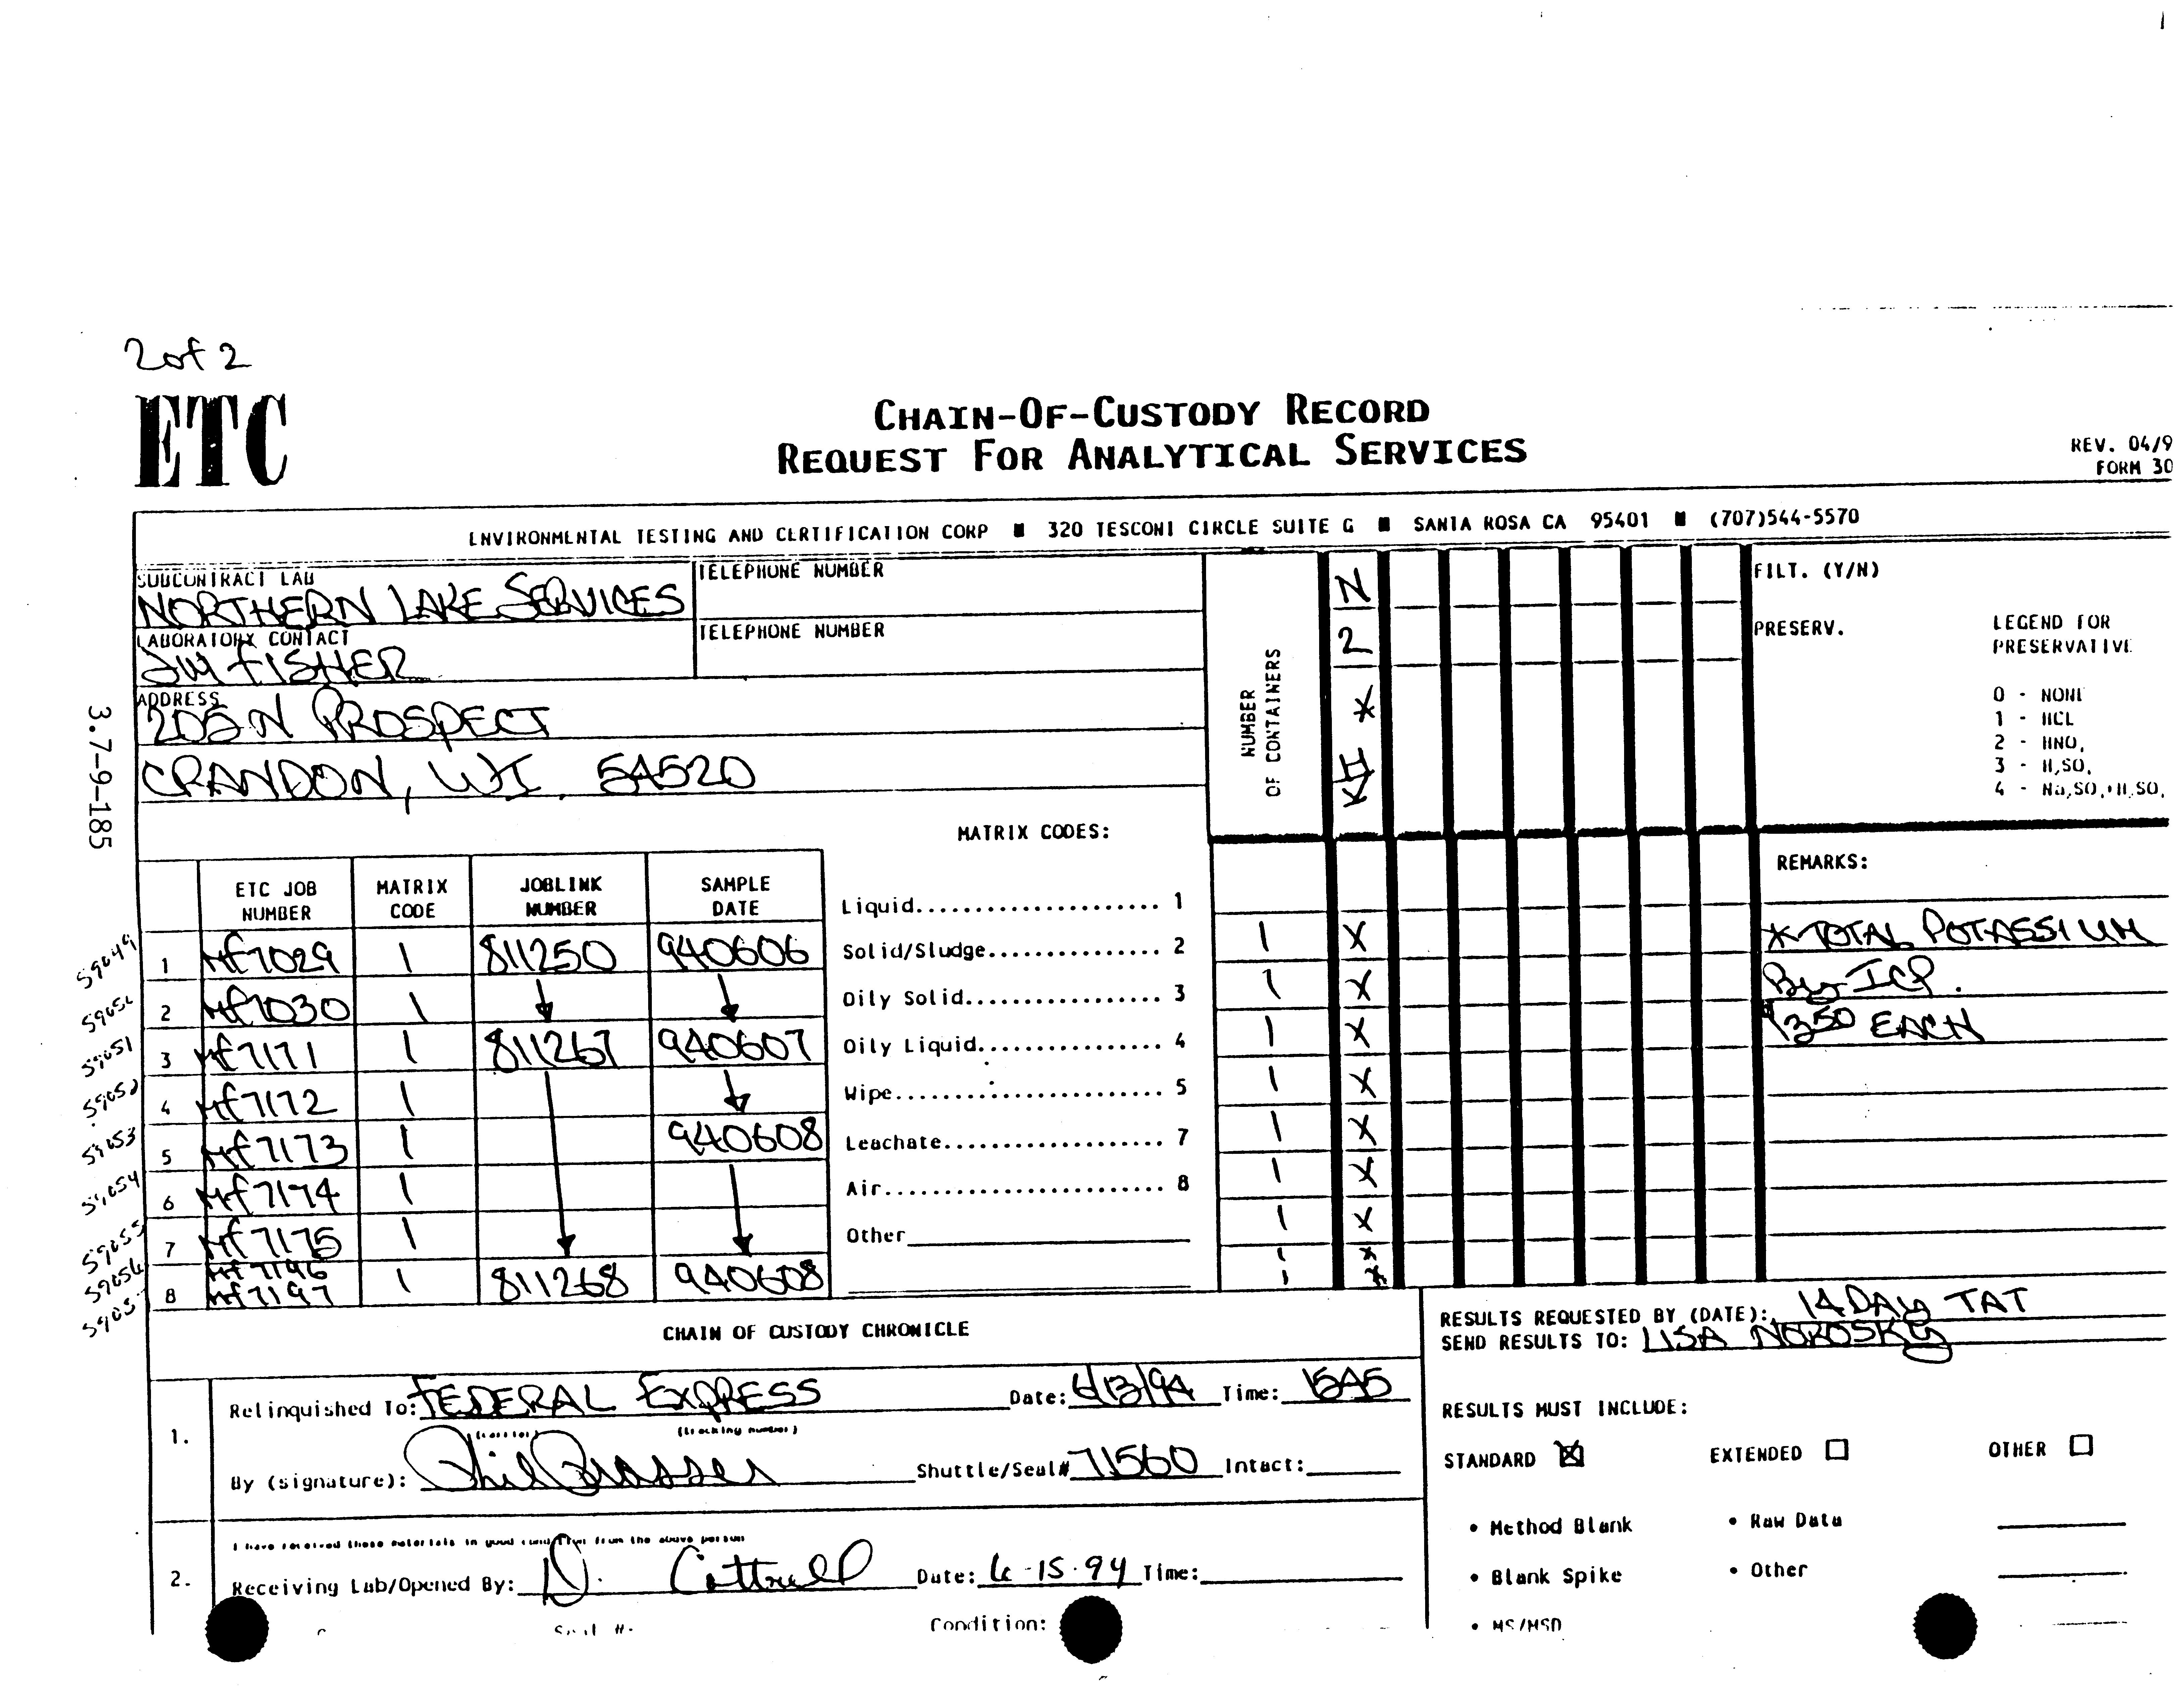 2 of 2
ETC
CHAIN-OF-CUSTODY RECORD
REQUEST FOR ANALYTICAL SERVICES
REV. 04/9
FORM 30
ENVIRONMENTAL TESTING AND CERTIFICATION CORP ■ 320 TESCONI CIRCLE SUITE G ■ SANTA ROSA CA 95401 ■ (707)544-5570
SUBCONTRACT LAB
NORTHERN LAKE SERVICES
TELEPHONE NUMBER
LABORATORY CONTACT
JIM FISHER
TELEPHONE NUMBER
ADDRESS
205 N PROSPECT
CRANDON, WI. 54520
3.7-9-185
NUMBER
OF CONTAINERS
N
2
KII *
FILT. (Y/N)
PRESERV.
LEGEND FOR
PRESERVATIVE
0 - NONE
1 - HCL
2 - HNO,
3 - H,SO,
4 - Na,SO,+H,SO,
MATRIX CODES:
Liquid..................... 1
Solid/Sludge............... 2
Oily Solid................. 3
Oily Liquid................ 4
Wipe....................... 5
Leachate................... 7
Air........................ 8
Other
REMARKS:
* TOTAL POTASSIUM
By ICP.
1350 EACH
ETC JOB NUMBER MATRIX CODE JOBLINK NUMBER SAMPLE DATE
59049 1 MF7029 1 811250 940606 1 X
2 MF7030 1 1 X
59051 3 MF7171 1 811267 940607 1 X
59052 4 MF7172 1 1 X
59053 5 MF7173 1 940608 1 X
59054 6 MF7174 1 1 X
59055 7 MF7175 1 1 X
59056 MF7196 1 X
8 MF7197 1 811268 940608 1 X
CHAIN OF CUSTODY CHRONICLE
RESULTS REQUESTED BY (DATE): 14 DAY TAT
SEND RESULTS TO: LISA NOROSKY
1.
Relinquished To: FEDERAL EXPRESS Date: 6/13/94 Time: 1545
(carrier) (tracking number)
By (signature): Shuttle/Seal# 71560 Intact:
RESULTS MUST INCLUDE:
STANDARD ☒ EXTENDED ☐ OTHER ☐
• Method Blank • Raw Data
• Blank Spike • Other
• MS/MSD
I have received these materials in good condition from the above person
2. Receiving Lab/Opened By: N. Cottrell Date: 6-15-94 Time:
Seal #: Condition: